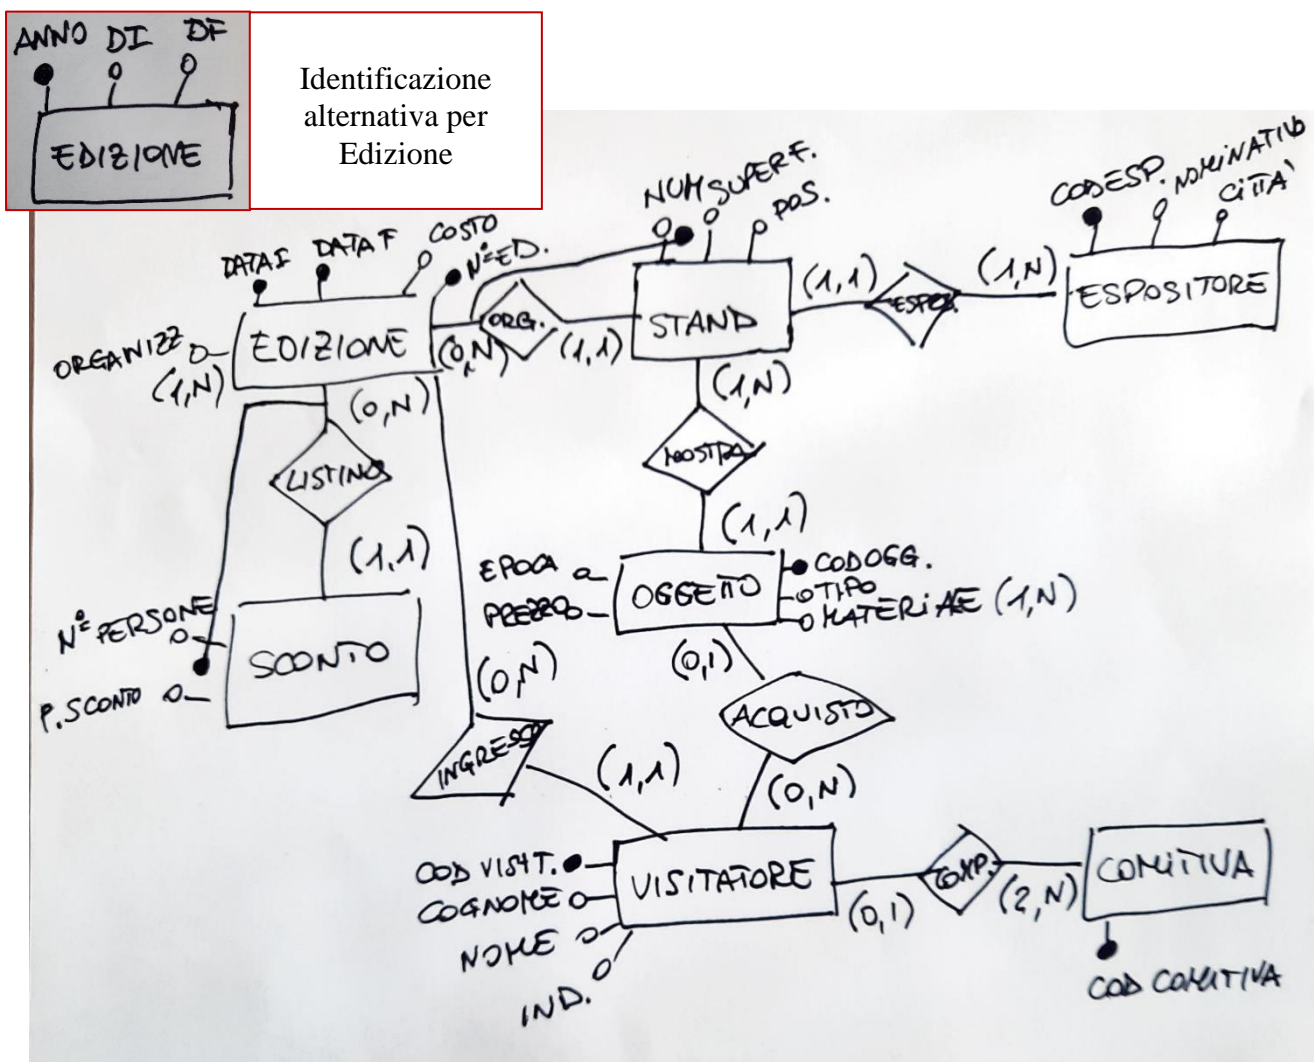 ANNO DI DF
EDIZIONE
Identificazione
alternativa per
Edizione
DATA I DATA F COSTO
N° ED.
ORGANIZZ
(1,N)
EDIZIONE
(0,N)
ORG.
(1,1)
NUM SUPERF.
POS.
STAND
(1,1)
ESPOS.
(1,N)
CODESP. NOMINATIVO
CITTA'
ESPOSITORE
(0,N)
LISTINO
(1,1)
N° PERSONE
P. SCONTO
SCONTO
(1,N)
MOSTRA
(1,1)
EPOCA
PREZZO
OGGETTO
CODOGG.
TIPO
MATERIALE (1,N)
(0,1)
ACQUISTO
(0,N)
(0,N)
INGRESSO
(1,1)
COD VISIT.
COGNOME
NOME
IND.
VISITATORE
(0,1)
COMP.
(2,N)
COMITIVA
COD COMITIVA